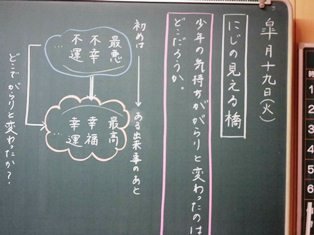 皐月十九日(火)
にじの見える橋
少年の気持ちががらりと変わったのは
どこだろうか。
初めは
ある出来事のあと
最悪
不幸
不運
…
最高
幸福
幸運
…
どこでがらりと変わったか？